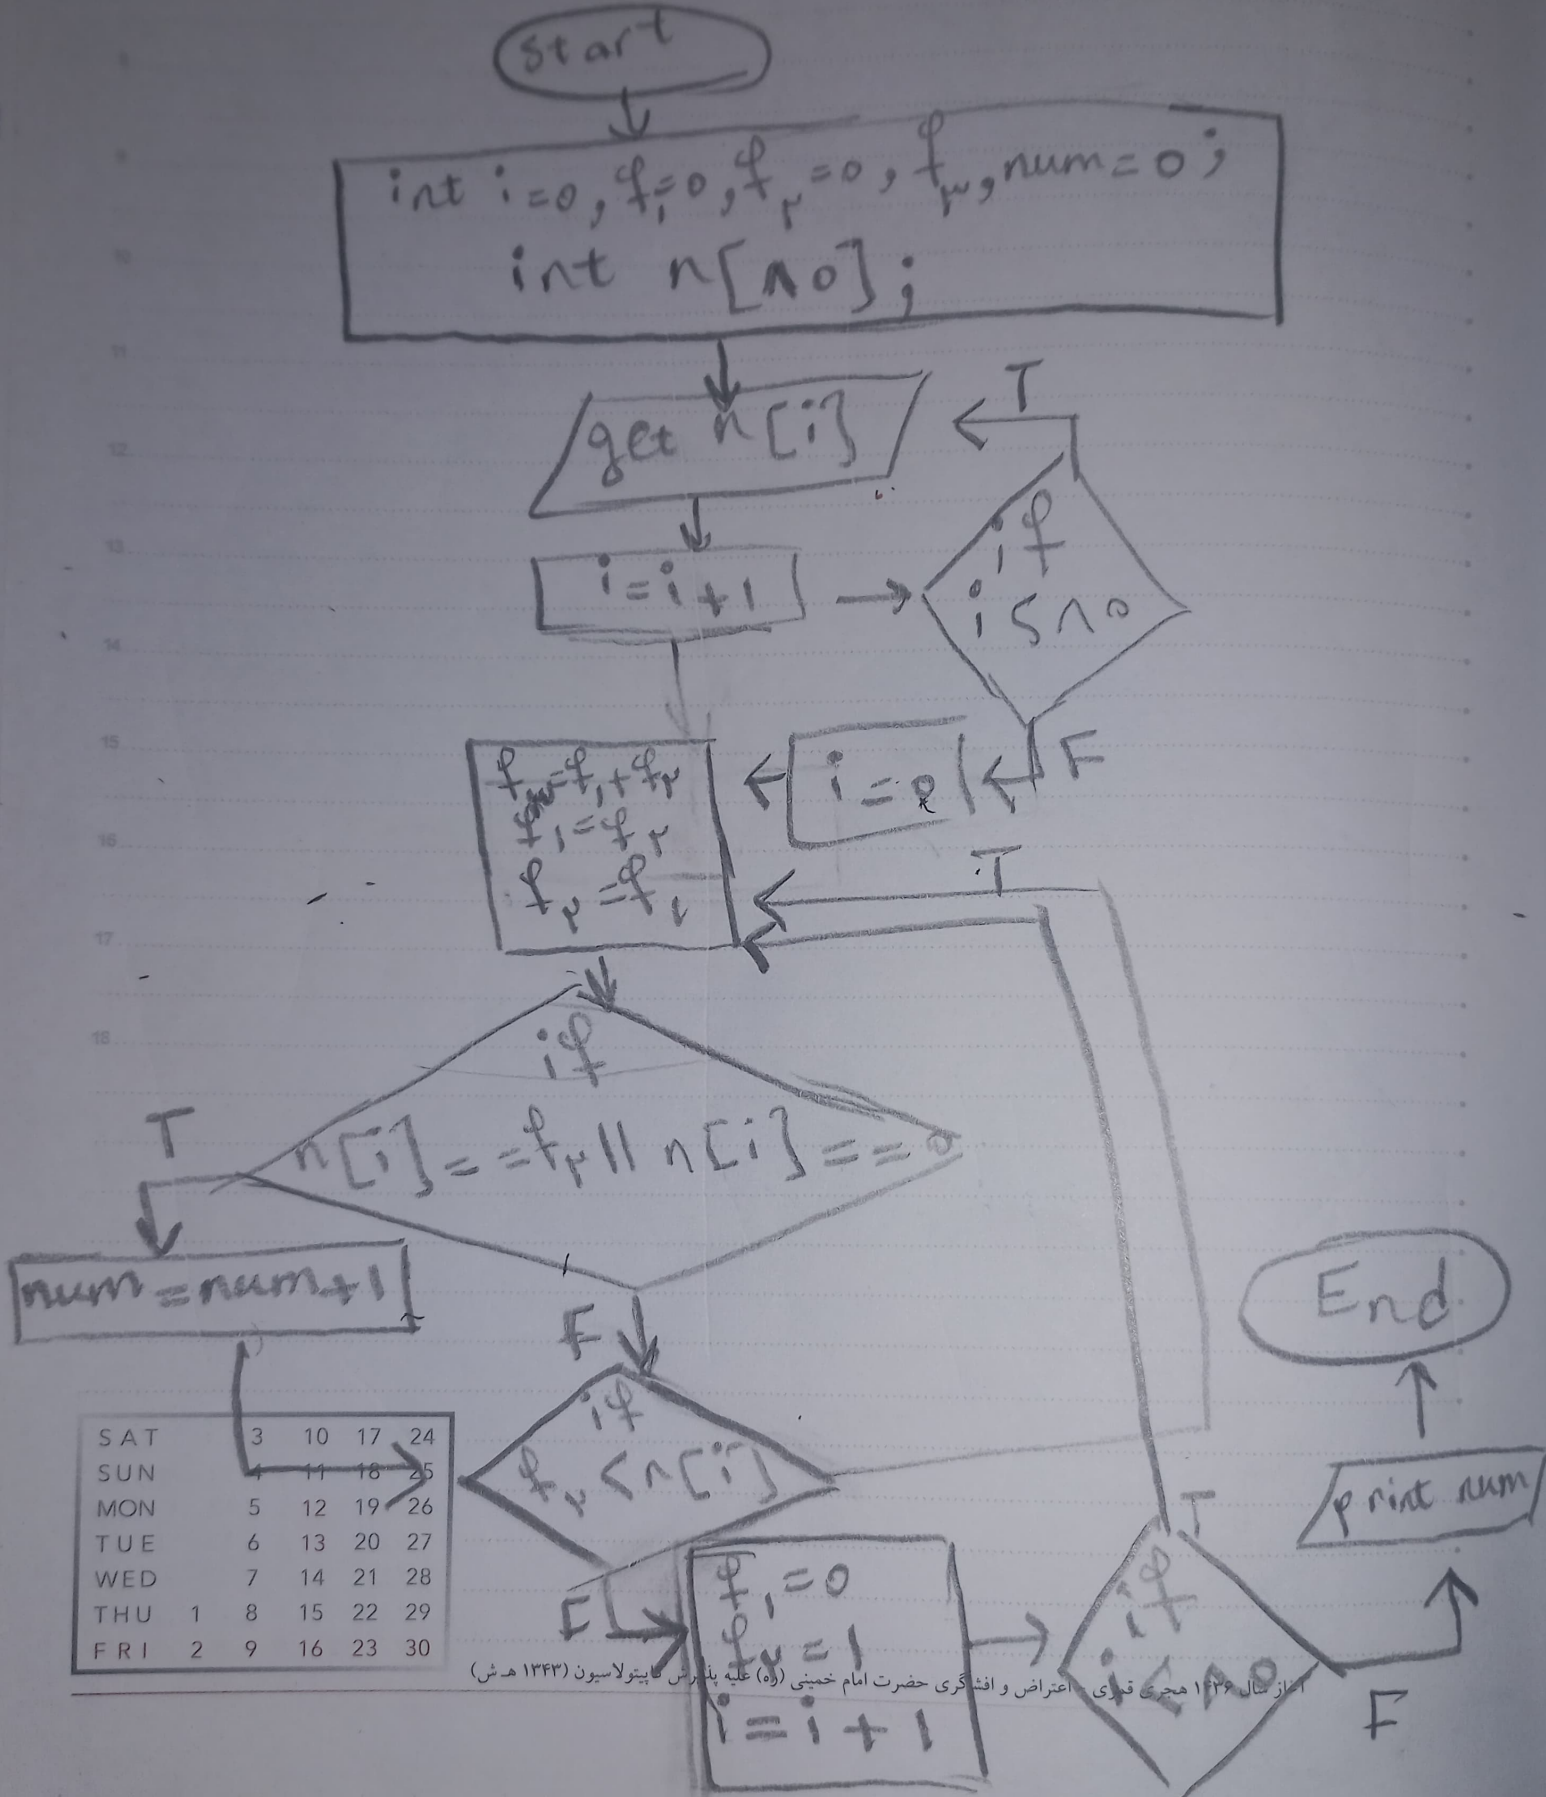 start
int i=0, f۱=0, f۲=0, f۳, num=0;
int n[۸0];
get n[i]
T
i=i+1
if
i<۸0
F
i=0
f۳=f۱+f۲
f۱=f۲
T
if
n[i]==f۲||n[i]==0
T
num=num+1
F
if
f۲<n[i]
F
f۱=0
f۲=1
i=i+1
T
if
i<۸0
F
print num
End
9
10
11
12
13
14
15
16
17
18
SAT 3 10 17 24
SUN 4 11 18 25
MON 5 12 19 26
TUE 6 13 20 27
WED 7 14 21 28
THU 1 8 15 22 29
FRI 2 9 16 23 30
آغاز سال ۱۴۳۶ هجری قمری - اعتراض و افشاگری حضرت امام خمینی (ره) علیه پذیرش کاپیتولاسیون (۱۳۴۳ هـ ش)